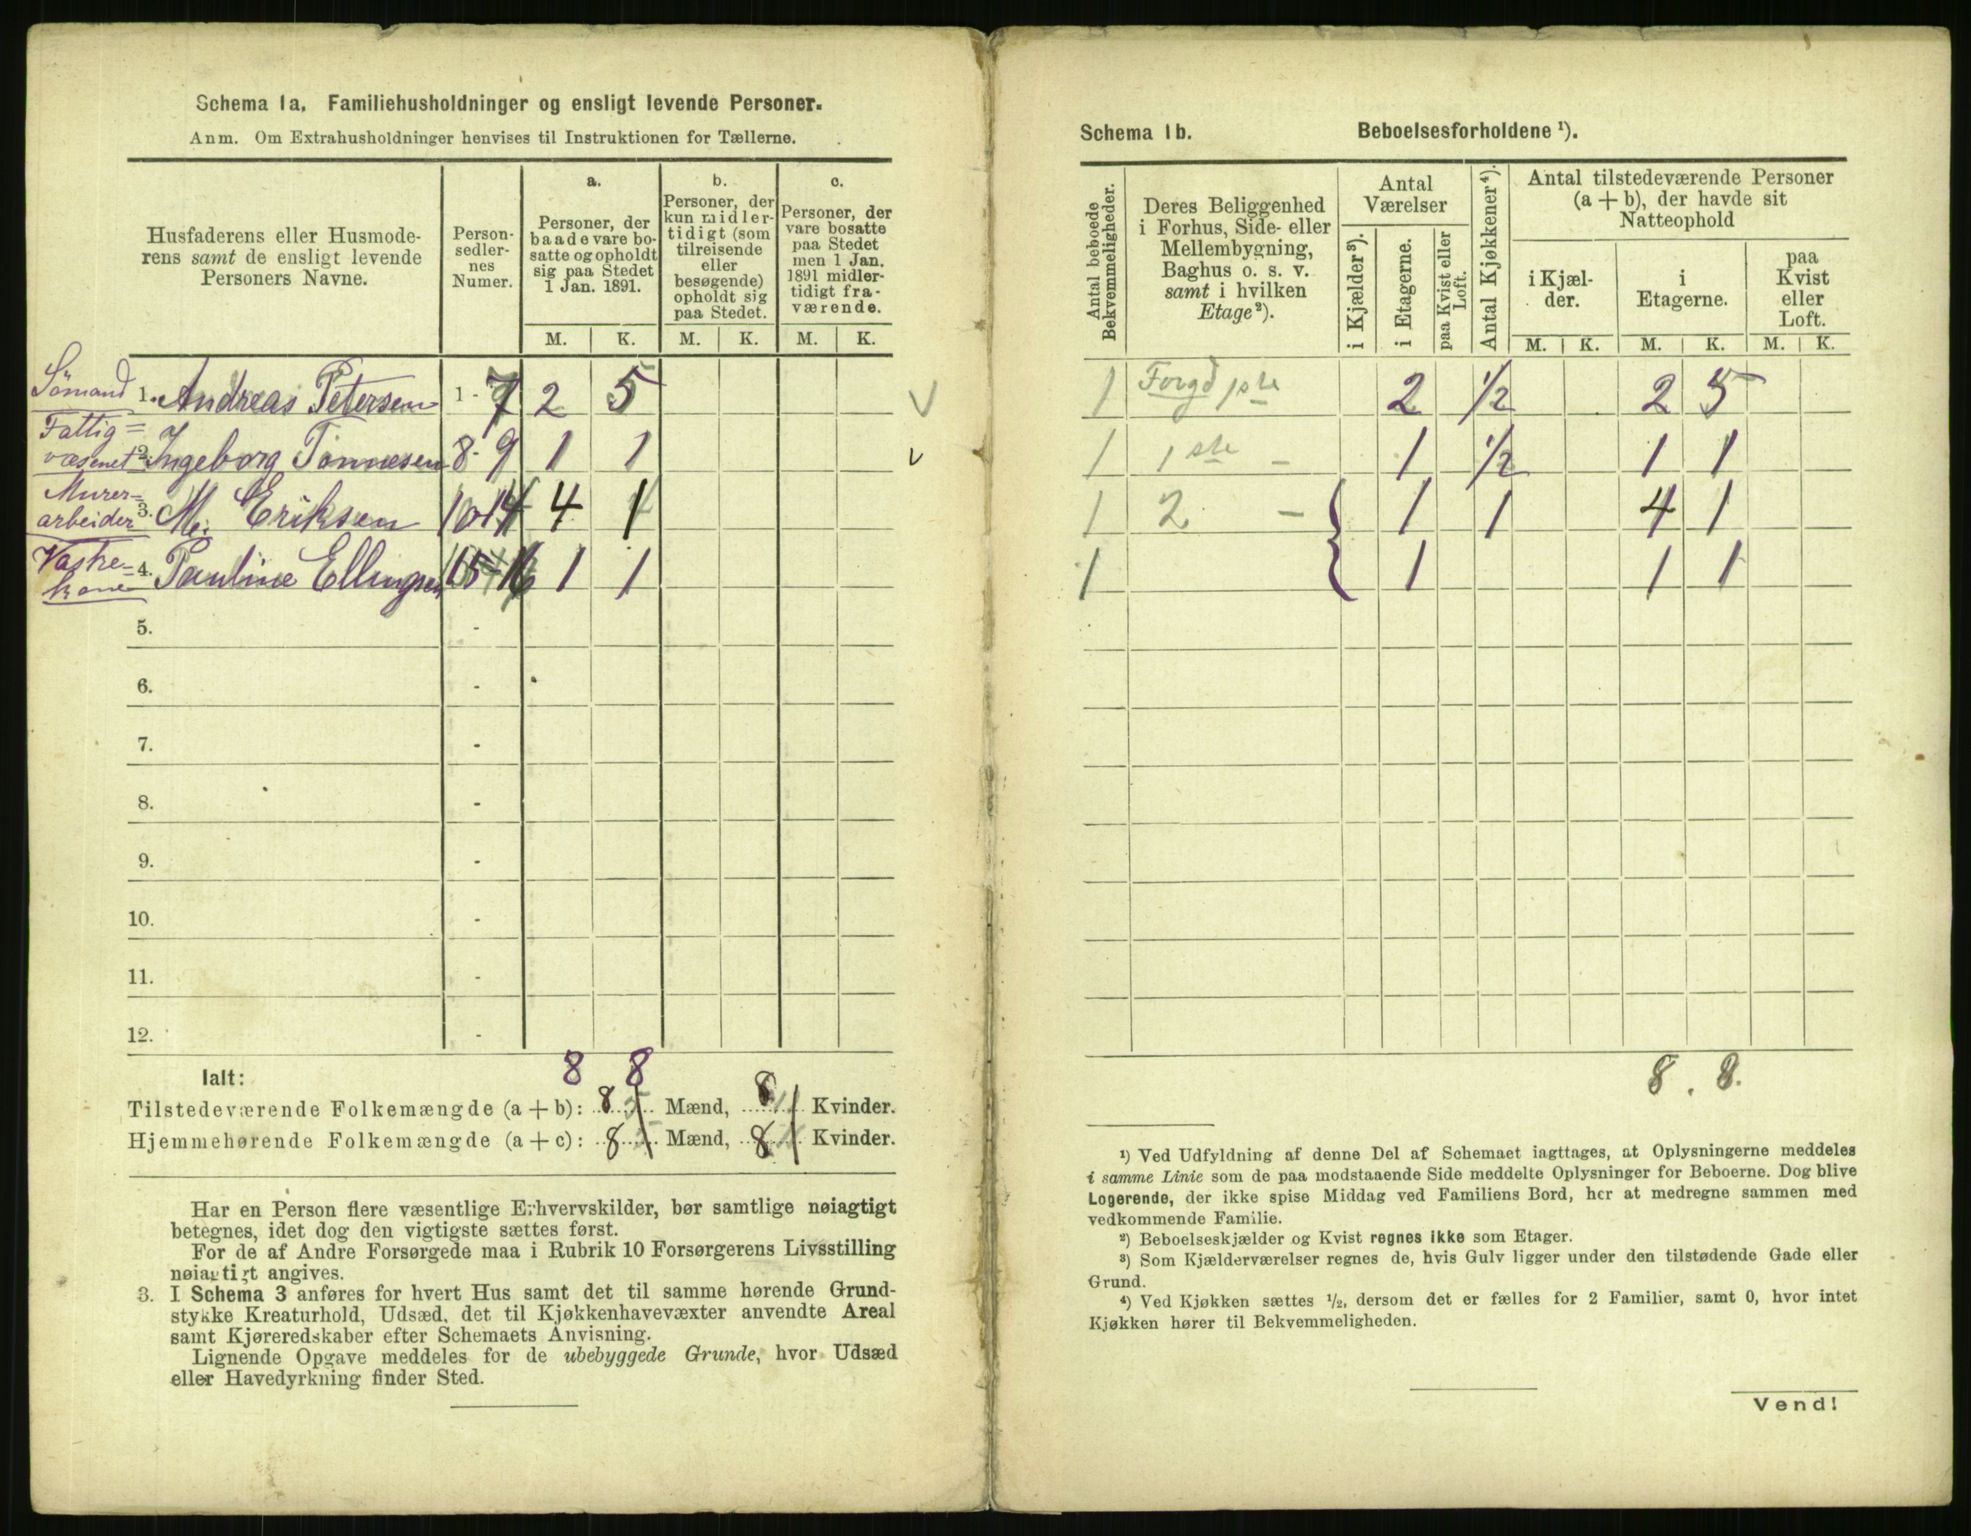 Schema 1a. Familiehusholdninger og ensligt levende Personer.
Anm. Om Extrahusholdninger henvises til Instruktionen for Tællerne.
Husfaderens eller Husmode-
rens samt de ensligt levende
Personers Navne.
Person-
sedler-
nes
Numer.
a.
Personer, der
baade vare bo-
satte og opholdt
sig paa Stedet
1 Jan. 1891.
b.
Personer, der
kun midler-
tidigt (som
tilreisende
eller
besøgende)
opholdt sig
paa Stedet.
c.
Personer, der
vare bosatte
paa Stedet
men 1 Jan.
1891 midler-
tidigt fra-
værende.
M. K. M. K. M. K.
Sömand 1. Andreas Petersen 1-7 2 5
Fattig=
væsenet 2. Ingeborg Tønnesen 8-9 1 1
Murer=
arbeider 3. M. Eriksen 10-14 4 1
Vaske=
kone 4. Pauline Ellingsen 15-16 1 1
5. -
6. -
7. -
8. -
9. -
10. -
11. -
12. -
8 8
Ialt:
Tilstedeværende Folkemængde (a + b): 8 Mænd, 8 Kvinder.
Hjemmehørende Folkemængde (a + c): 8 Mænd, 8 Kvinder.
Har en Person flere væsentlige Erhvervskilder, bør samtlige nøiagtigt
betegnes, idet dog den vigtigste sættes først.
For de af Andre Forsørgede maa i Rubrik 10 Forsørgerens Livsstilling
nøiagtigt angives.
3. I Schema 3 anføres for hvert Hus samt det til samme hørende Grund-
stykke Kreaturhold, Udsæd, det til Kjøkkenhavevæxter anvendte Areal
samt Kjøreredskaber efter Schemaets Anvisning.
Lignende Opgave meddeles for de ubebyggede Grunde, hvor Udsæd
eller Havedyrkning finder Sted.
Schema 1b. Beboelsesforholdene ¹).
Antal beboede
Bekvemmeligheder.
Deres Beliggenhed
i Forhus, Side- eller
Mellembygning,
Baghus o. s. v.
samt i hvilken
Etage²).
Antal
Værelser
i Kjælder³).
i Etagerne.
paa Kvist eller
Loft.
Antal Kjøkkener⁴).
Antal tilstedeværende Personer
(a + b), der havde sit
Natteophold
i Kjæl-
der.
i
Etagerne.
paa
Kvist
eller
Loft.
M. K. M. K. M. K.
1 Forgd 1ste 2 1/2 2 5
1 1ste - 1 1/2 1 1
1 2 - 1 1 4 1
1 1 1 1
8. 8.
¹) Ved Udfyldning af denne Del af Schemaet iagttages, at Oplysningerne meddeles
i samme Linie som de paa modstaaende Side meddelte Oplysninger for Beboerne. Dog blive
Logerende, der ikke spise Middag ved Familiens Bord, her at medregne sammen med
vedkommende Familie.
²) Beboelseskjælder og Kvist regnes ikke som Etager.
³) Som Kjælderværelser regnes de, hvis Gulv ligger under den tilstødende Gade eller
Grund.
⁴) Ved Kjøkken sættes ½, dersom det er fælles for 2 Familier, samt 0, hvor intet
Kjøkken hører til Bekvemmeligheden.
Vend!